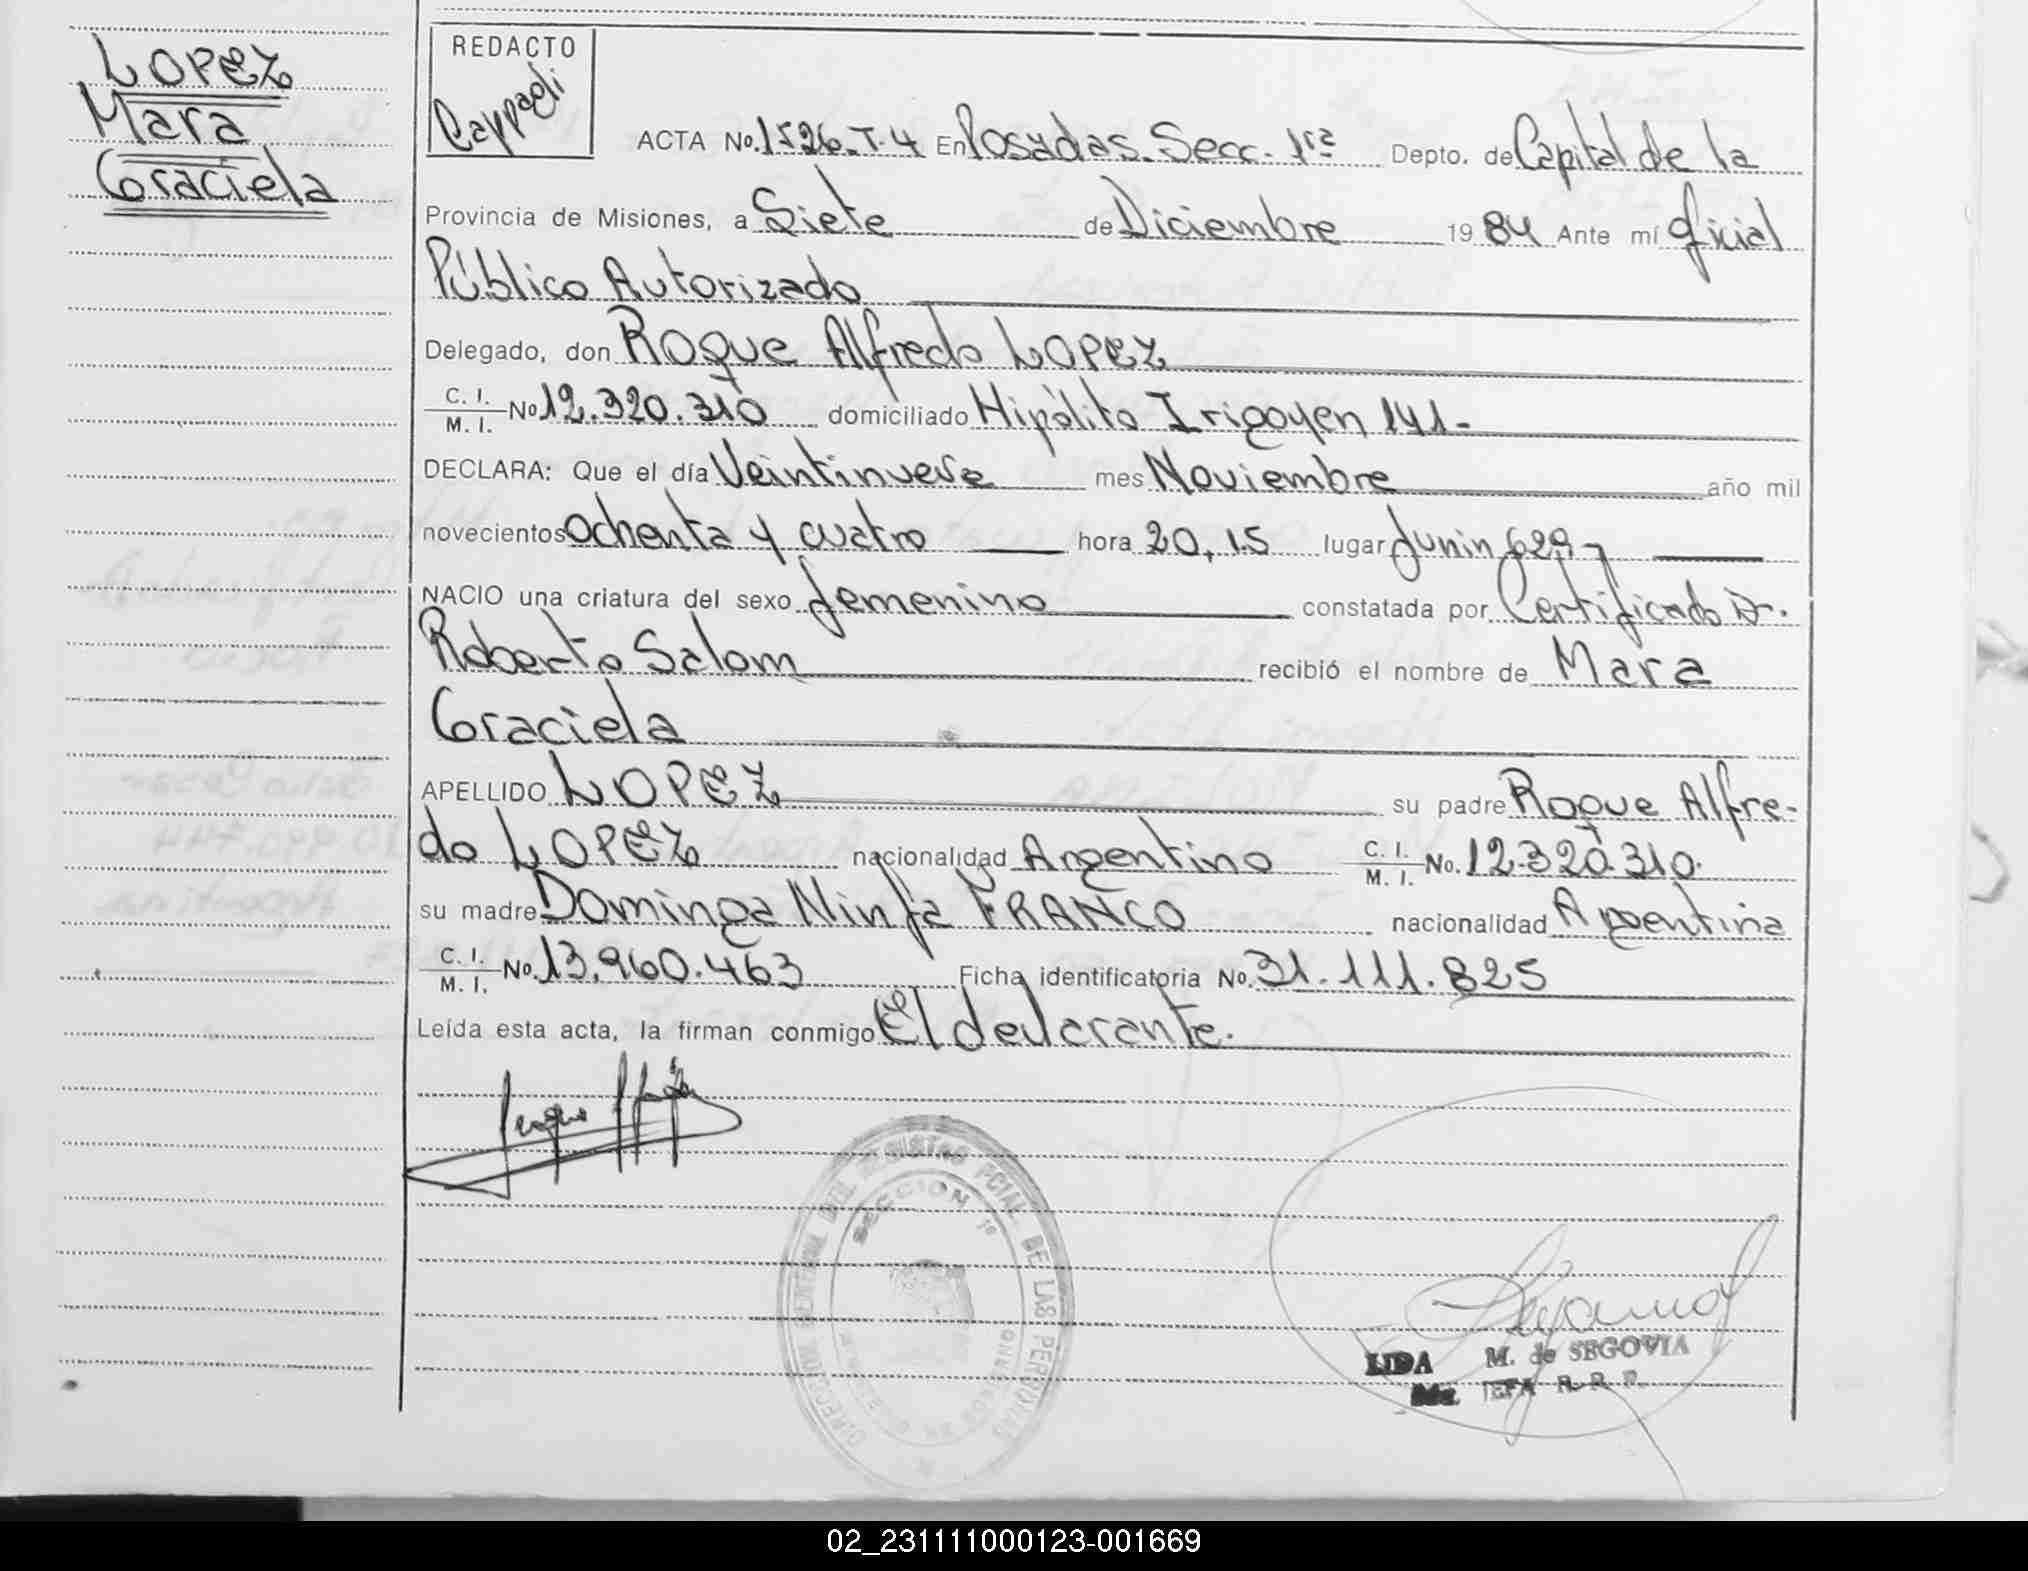 LOPEZ
Mara
Graciela
REDACTO
Cappagli
ACTA No. 1526-T-4 En Posadas. Secc. 1ra Depto. de Capital de la
Provincia de Misiones, a Siete de Diciembre 1984 Ante mí Oficial
Público Autorizado
Delegado, don Roque Alfredo LOPEZ
C. I.
M. I. No 12.320.310 domiciliado Hipólito Irigoyen 141-
DECLARA: Que el día Veintinueve mes Noviembre año mil
novecientos Ochenta y cuatro hora 20,15 lugar Junin 629-
NACIO una criatura del sexo femenino constatada por Certificado Dr.
Roberto Salom recibió el nombre de Mara
Graciela
APELLIDO LOPEZ su padre Roque Alfre-
do LOPEZ nacionalidad Argentino C. I.
M. I. No. 12.320.310.
su madre Dominga Ninfa FRANCO nacionalidad Argentina
C. I.
M. I. No. 13.960.463 Ficha identificatoria No. 31.111.825
Leída esta acta, la firman conmigo El declarante.
DIRECCION GENERAL DEL REGISTRO PCIAL. DE LAS PERSONAS
SECCION 1º
LIDA M. de SEGOVIA
JEFA R. R. P.
02_231111000123-001669